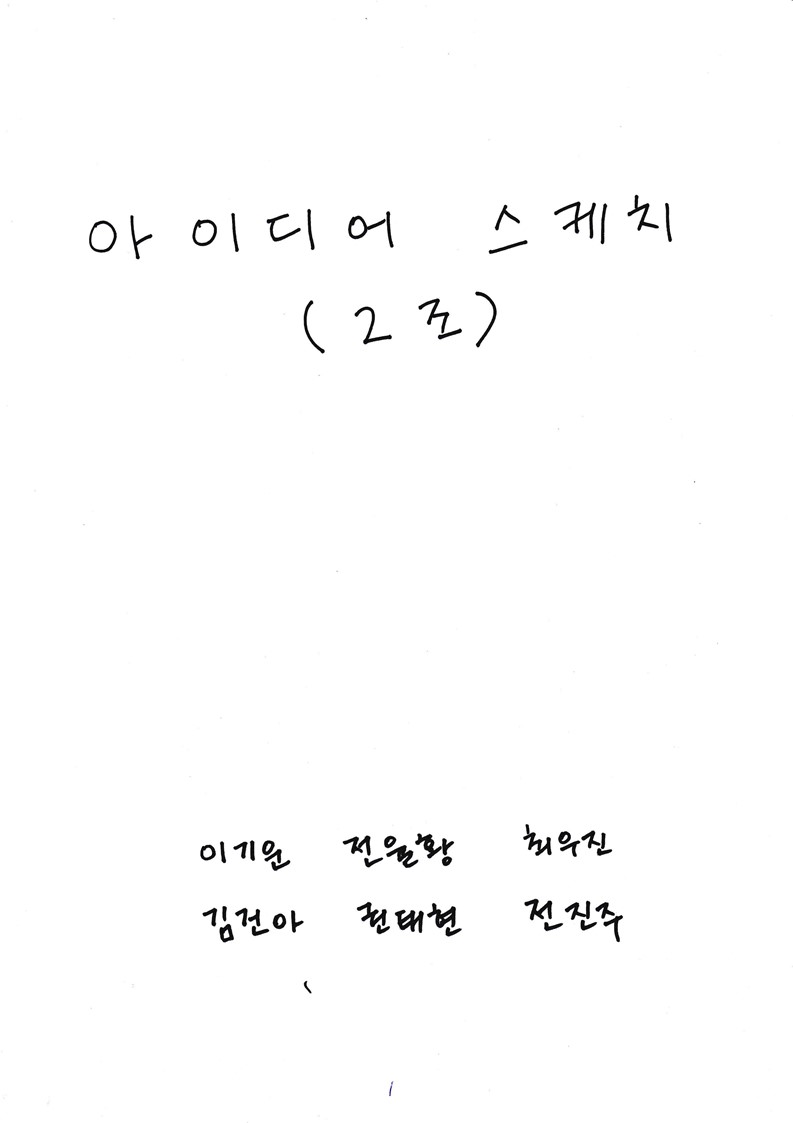 아이디어 스케치
(2조)
이기운 전율황 최우진
김건아 권태현 전진주
1